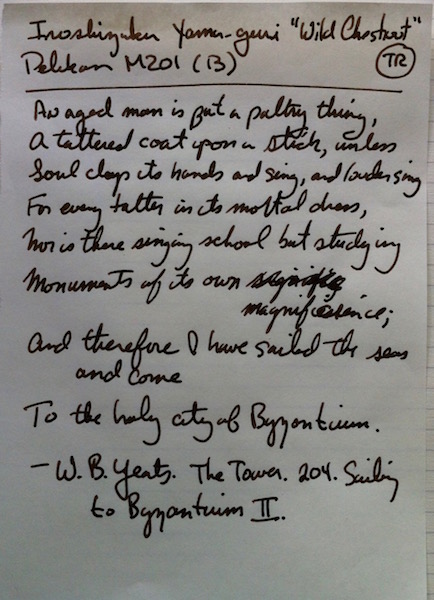 Iroshizuku Yama-guri "Wild Chestnut"
Pelikan M201 (B) TR
An aged man is but a paltry thing,
A tattered coat upon a stick, unless
Soul clap its hands and sing, and louder sing
For every tatter in its mortal dress,
Nor is there singing school but studying
Monuments of its own
magnificence;
And therefore I have sailed the seas
and come
To the holy city of Byzantium.
- W. B. Yeats. The Tower. 204. Sailing
to Byzantium II.